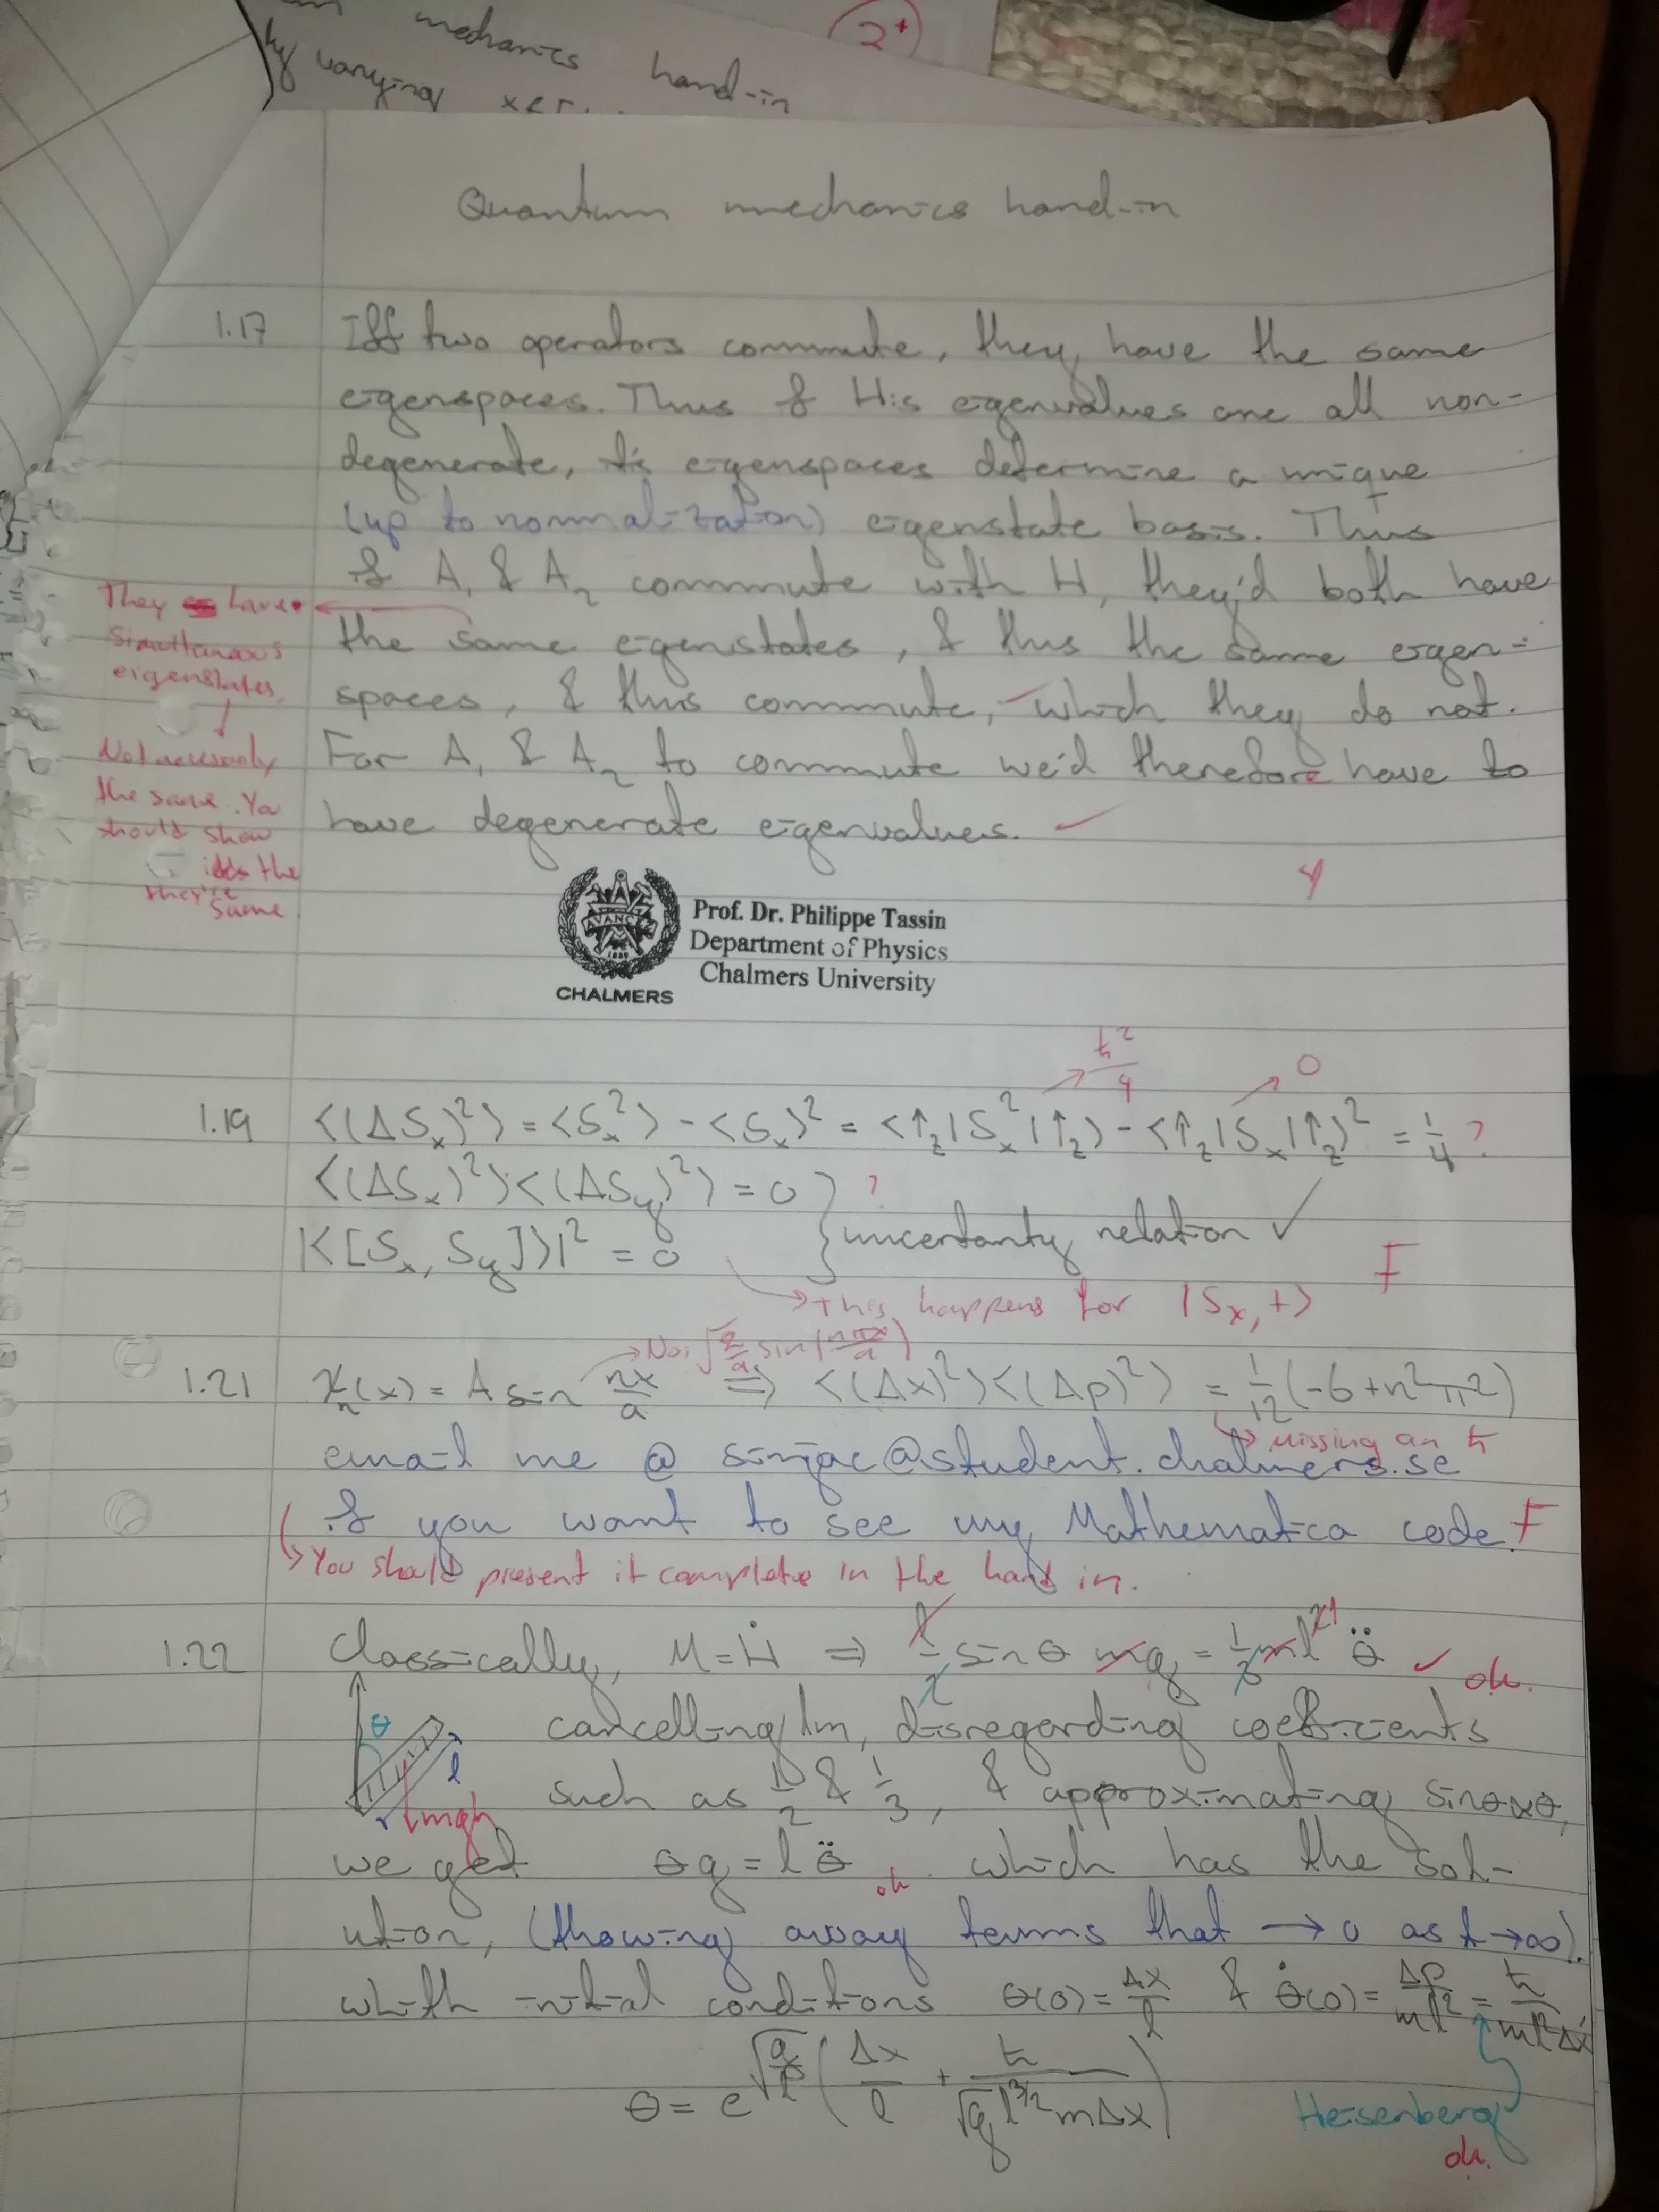 mechanics hand-in
2+
by varying
Quantum mechanics hand-in
1.17 Iff two operators commute, they have the same
eigenspaces. Thus if H:s eigenvalues are all non-
degenerate, its eigenspaces determine a unique
(up to normalization) eigenstate basis. Thus
if A₁ & A₂ commute with H, they'd both have
the same eigenstates, & thus the same eigen-
spaces, & thus commute, which they do not.
For A₁ & A₂ to commute we'd therefore have to
have degenerate eigenvalues.
They have
simultaneous
eigenstates
Not necessarily
the same. You
should show
the
they're
same
4
AVANCE
CHALMERS
Prof. Dr. Philippe Tassin
Department of Physics
Chalmers University
ħ²/4
0
1.19 <(ΔSₓ)²> = <Sₓ²> - <Sₓ>² = <↑z|Sₓ²|↑z> - <↑z|Sₓ|↑z>² = 1/4 ?
<(ΔSₓ)²><(ΔSy)²> = 0 } ?
|<[Sₓ, Sy]>|² = 0 } uncertainty relation ✓
F
→ This happens for |Sₓ,+>
→ No: √(2/a) sin(nπx/a)
1.21 χₙ(x) = A sin nx/a ⇒ <(Δx)²><(Δp)²> = 1/12 (-6+n²π²)
→ missing an ħ
email me @ simjac@student.chalmers.se
if you want to see my Mathematica code. F
→ You should present it complete in the hand in.
1.22 Classically, M = Ḣ ⇒ l/2 sin θ mg = 1/3 ml² θ̈ ✓ ok.
θ
l
mgh
cancelling lm, disregarding coefficients
such as 1/2 & 1/3, & approximating sinθ≈θ,
we get θg = lθ̈ ok. which has the sol-
ution, (throwing away terms that → 0 as t→∞).
whith initial conditions θ(0) = Δx/l & θ̇(0) = Δp/ml² = ħ/ml²Δx
Heisenberg
ok.